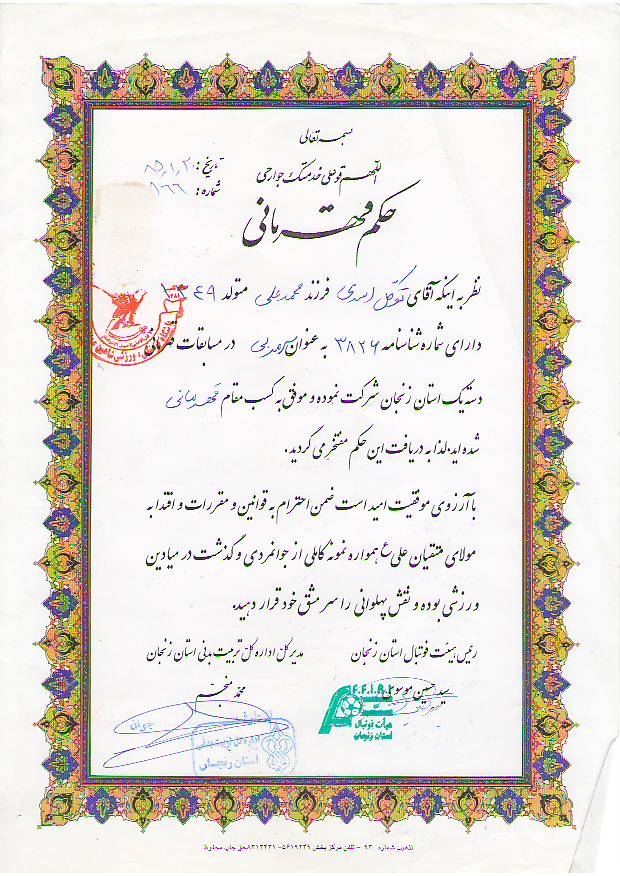 بسمه تعالی
اللهم قو علی خدمتک جوارحی
تاریخ: ۸۵،۱،۲۰
شماره: ۱۶۶
حکم قهرمانی
نظر به اینکه آقای توکل اسدی فرزند محمدعلی متولد ۱۳۴۹
دارای شماره شناسنامه ۳۸۲۶ به عنوان مربی در مسابقات قهرمانی
دسته یک استان زنجان شرکت نموده و موفق به کسب مقام قهرمانی
شده اید. لذا به دریافت این حکم مفتخر می گردید.
با آرزوی موفقیت امید است ضمن احترام به قوانین و مقررات و اقتدا به
مولای متقیان علی ع همواره نمونه کاملی از جوانمردی و گذشت در میادین
ورزشی بوده و نقش پهلوانی را سرمشق خود قرار دهید.
رئیس هیئت فوتبال استان زنجان
مدیر کل اداره کل تربیت بدنی استان زنجان
سید حسین موسوی
محمد منجم
F.F.I.R.I
هیأت فوتبال
استان زنجان
استان زنجان
تذهیب شماره ۹۳۰ - تلفن مرکز پخش ۵۶۱۹۲۴۹-۸۳۱۲۳۳۱ حق چاپ محفوظ